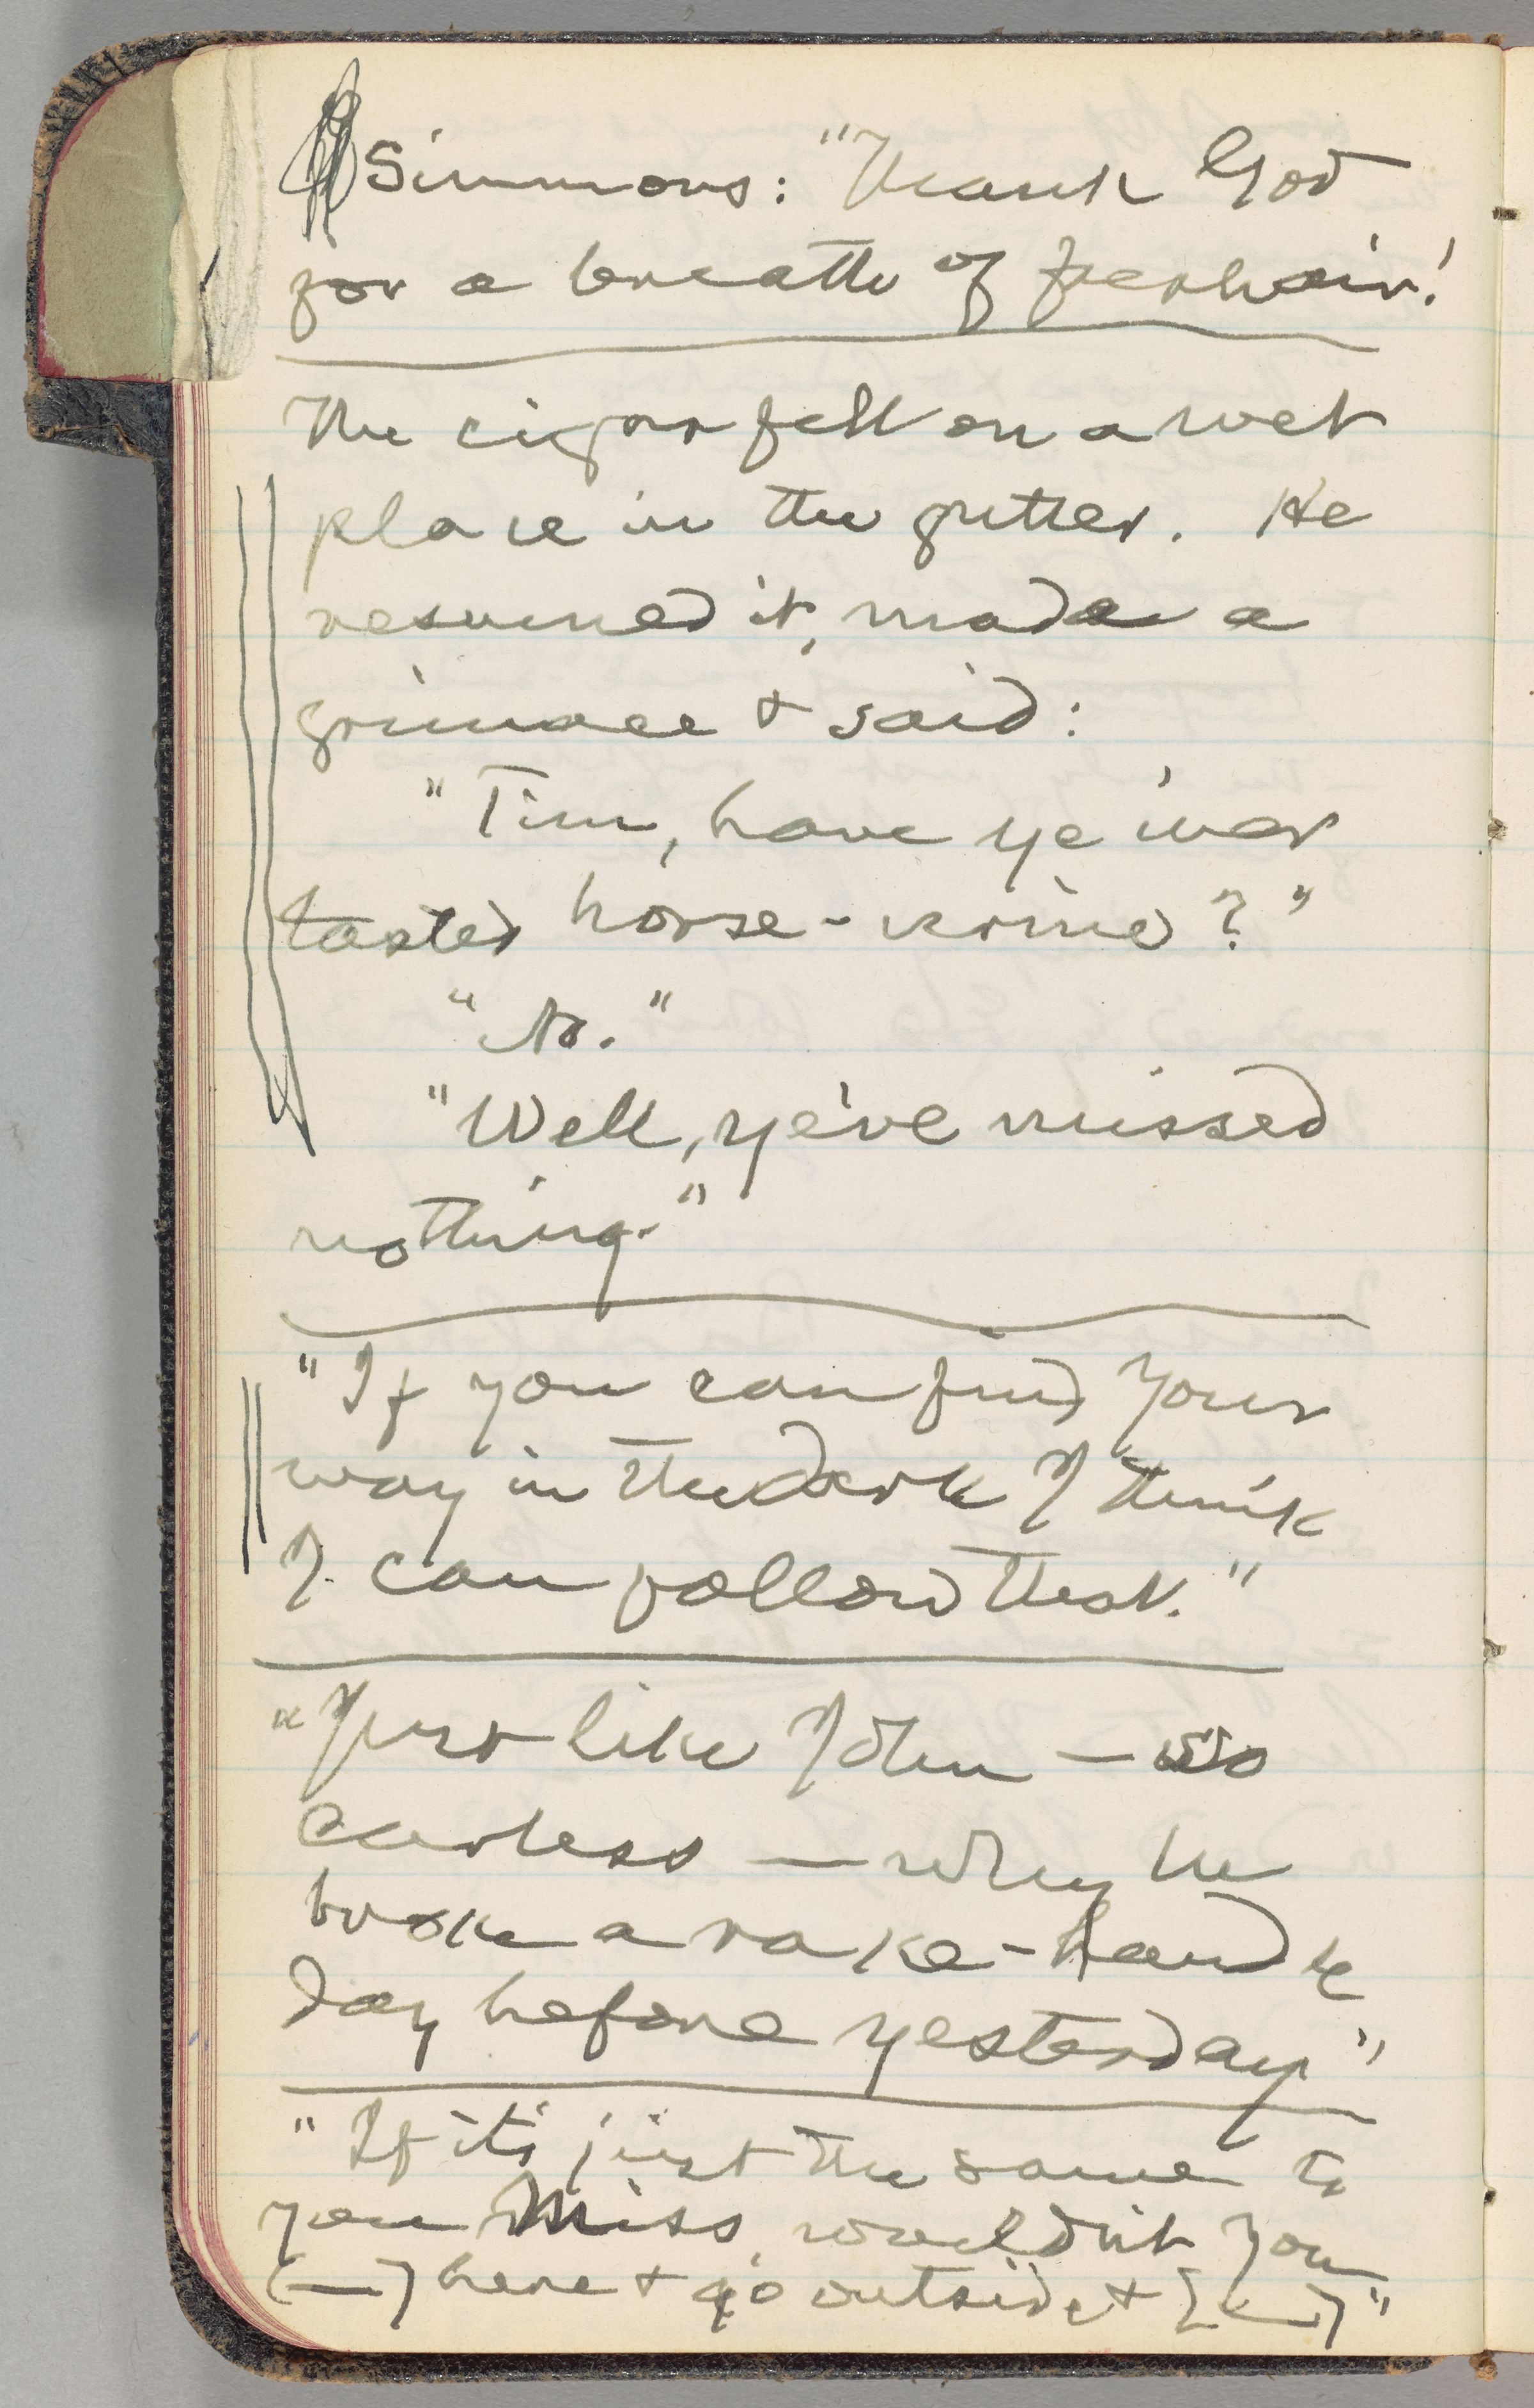 Simmons: "Thank God
for a breath of fresh air!
The cigar fell on a wet
place in the gutter. He
resumed it, made a
grimace & said:
"Tim, have ye iver
tasted horse-urine?"
"No."
"Well, ye've missed
nothing."
"If you can find your
way in the dark I think
I can follow that."
"Just like John — so
careless — why he
broke a rake-handle
day before yesterday"
"If it's just the same to
you Miss, wouldn't you
[—] here & go outside & [—]"